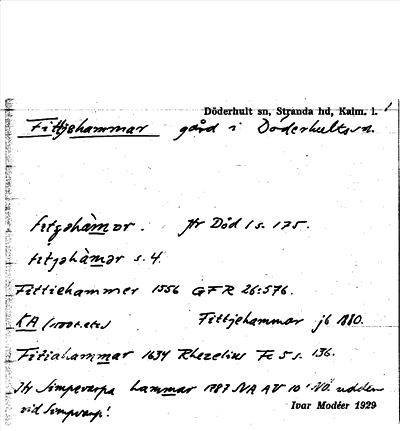 Döderhult sn, Stranda hd, Kalm. l.
Fittjehammar gård i Döderhults sn.
fitjəhàmər. Jfr Död 1 s. 175.
fitjəhàmər s. 4.
Fittiehammer 1556 GFR 26:576.
KA Fittjehammar jb 1880.
Fitiahammar 1634 Rhezelius Fc 5 s. 136.
Simpevarpa hammar 1787 NA AV 10 udden
vid Simpevarp! Ivar Modéer 1929